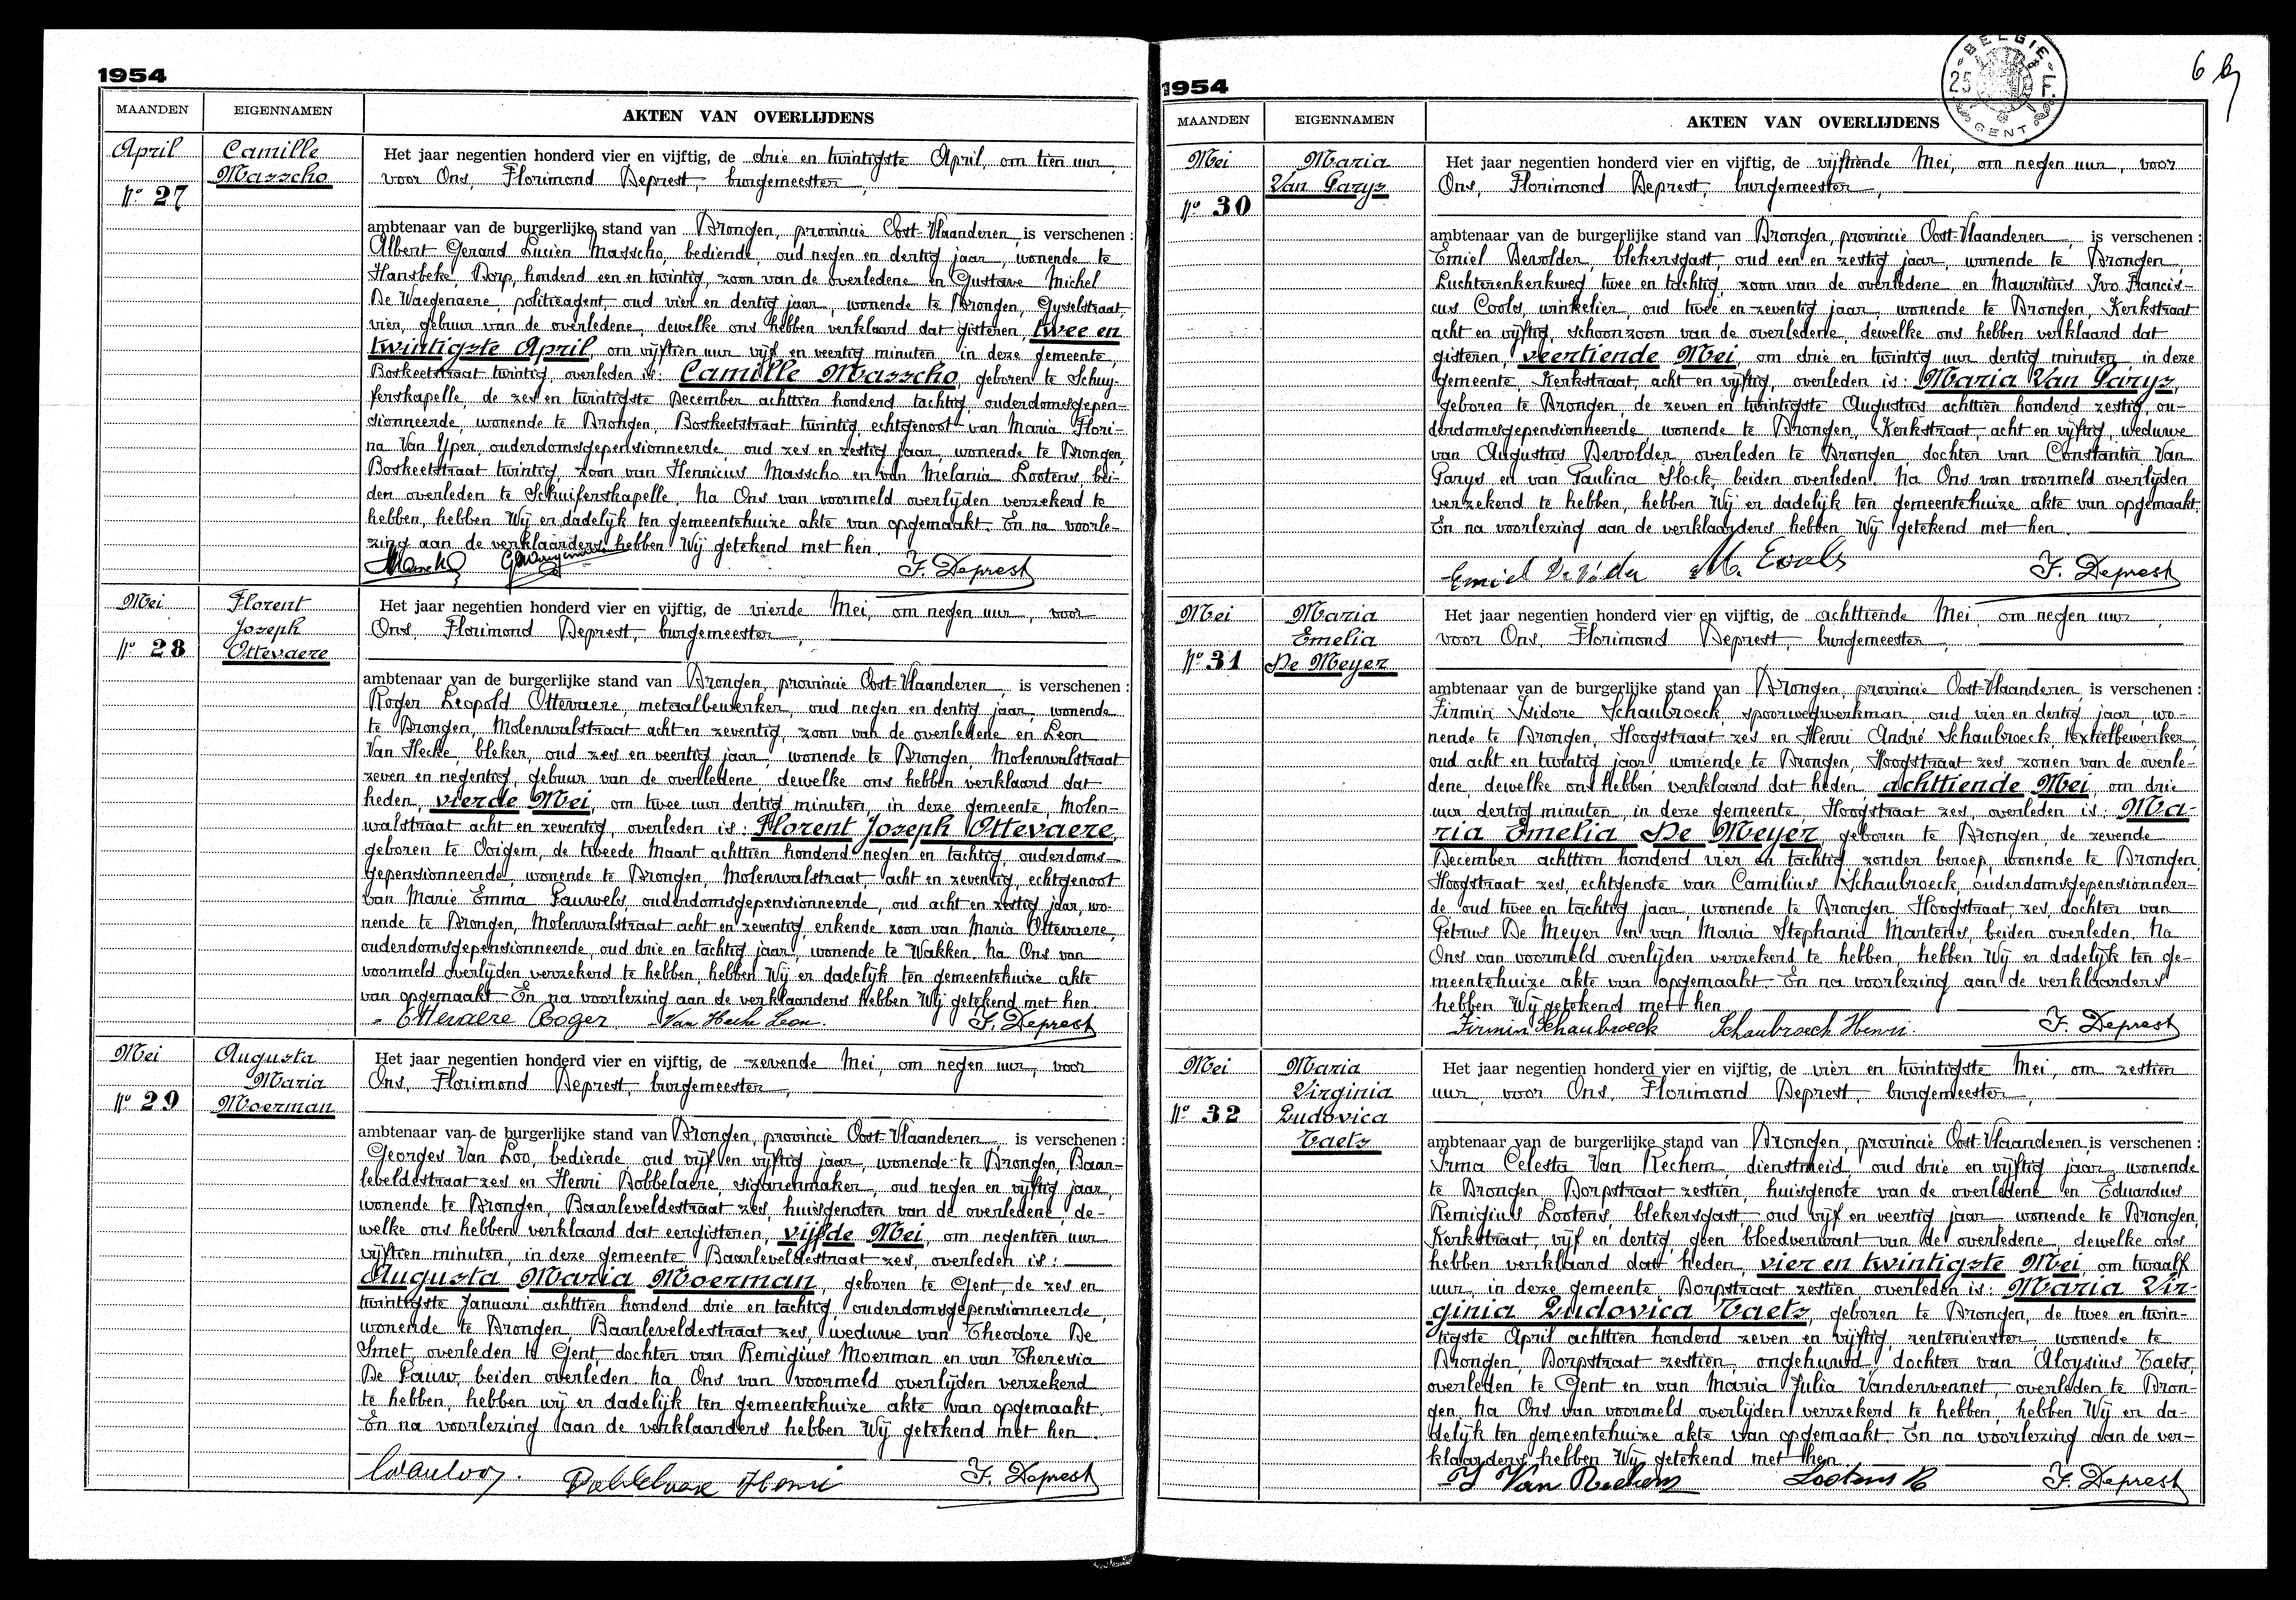 1954
MAANDEN EIGENNAMEN AKTEN VAN OVERLIJDENS
April
Nº 27
Camille
Masscho
Het jaar negentien honderd vier en vijftig, de drie en twintigste April, om tien uur,
voor Ons, Florimond Deprest, burgemeester,
ambtenaar van de burgerlijke stand van Drongen, provincie Oost-Vlaanderen, is verschenen:
Albert Gerard Lucien Masscho, bediende, oud negen en dertig jaar, wonende te
Hansbeke, Dorp, honderd een en twintig, zoon van de overledene en Gustave Michel
De Waegenaere, politieagent, oud vier en dertig jaar, wonende te Drongen, Gijselstraat,
vier, gebuur van de overledene, dewelke ons hebben verklaard dat gisteren, twee en
twintigste April, om vijftien uur vijf en veertig minuten in deze gemeente,
Boskeetstraat twintig, overleden is: Camille Masscho, geboren te Schuy-
ferskapelle, de zes en twintigste December achttien honderd tachtig, ouderdomsgepen-
sionneerde, wonende te Drongen, Boskeetstraat twintig, echtgenoot van Maria Flori-
na Van Yper, ouderdomsgepensionneerde, oud zes en zestig jaar, wonende te Drongen,
Boskeetstraat twintig, zoon van Henricus Masscho en van Melania Lootens, bei-
den overleden te Schuiferskapelle. Na Ons van voormeld overlijden verzekerd te
hebben, hebben Wij er dadelijk ten gemeentehuize akte van opgemaakt. En na voorle-
zing aan de verklaarders hebben Wij getekend met hen.
F. Deprest
Mei
Nº 28
Florent
Joseph
Ottevaere
Het jaar negentien honderd vier en vijftig, de vierde Mei, om negen uur, voor
Ons, Florimond Deprest, burgemeester,
ambtenaar van de burgerlijke stand van Drongen, provincie Oost-Vlaanderen, is verschenen:
Roger Leopold Ottevaere, metaalbewerker, oud negen en dertig jaar, wonende
te Drongen, Molenwalstraat acht en zeventig, zoon van de overledene en Leon
Van Hecke, bleker, oud zes en veertig jaar, wonende te Drongen, Molenwalstraat
zeven en negentig, gebuur van de overledene, dewelke ons hebben verklaard dat
heden, vierde Mei, om twee uur dertig minuten, in deze gemeente, Molen-
walstraat acht en zeventig, overleden is: Florent Joseph Ottevaere,
geboren te Ooigem, de tweede Maart achttien honderd negen en tachtig, ouderdoms-
gepensionneerde, wonende te Drongen, Molenwalstraat, acht en zeventig, echtgenoot
van Marie Emma Pauwels, ouderdomsgepensionneerde, oud acht en zestig jaar, wo-
nende te Drongen, Molenwalstraat acht en zeventig, erkende zoon van Maria Ottevaere,
ouderdomsgepensionneerde, oud drie en tachtig jaar, wonende te Wakken. Na Ons van
voormeld overlijden verzekerd te hebben, hebben Wij er dadelijk ten gemeentehuize akte
van opgemaakt. En na voorlezing aan de verklaarders hebben Wij getekend met hen.
Ottevaere Roger Van Hecke Leon. F. Deprest
Mei
Nº 29
Augusta
Maria
Moerman
Het jaar negentien honderd vier en vijftig, de zevende Mei, om negen uur, voor
Ons, Florimond Deprest, burgemeester,
ambtenaar van de burgerlijke stand van Drongen, provincie Oost-Vlaanderen, is verschenen:
Georges Van Loo, bediende, oud vijf en vijftig jaar, wonende te Drongen, Baar-
leveldestraat zes en Henri Dobbelaere, sigarenmaker, oud negen en vijftig jaar,
wonende te Drongen, Baarleveldestraat zes, huisgenoten van de overledene, de-
welke ons hebben verklaard dat eergisteren, vijfde Mei, om negentien uur
vijftien minuten, in deze gemeente, Baarleveldestraat zes, overleden is:
Augusta Maria Moerman, geboren te Gent, de zes en
twintigste Januari achttien honderd drie en tachtig, ouderdomsgepensionneerde,
wonende te Drongen, Baarleveldestraat zes, weduwe van Theodore De
Smet, overleden te Gent, dochter van Remigius Moerman en van Theresia
De Pauw, beiden overleden. Na Ons van voormeld overlijden verzekerd
te hebben, hebben wij er dadelijk ten gemeentehuize akte van opgemaakt.
En na voorlezing aan de verklaarders hebben Wij getekend met hen.
GVanloo. Dobbelaere Henri F. Deprest
BELGIE
25 F.
GENT
6
1954
MAANDEN EIGENNAMEN AKTEN VAN OVERLIJDENS
Mei
Nº 30
Maria
Van Parys
Het jaar negentien honderd vier en vijftig, de vijftiende Mei, om negen uur, voor
Ons, Florimond Deprest, burgemeester,
ambtenaar van de burgerlijke stand van Drongen, provincie Oost-Vlaanderen, is verschenen:
Emiel Devolder, blekersgast, oud een en zestig jaar, wonende te Drongen,
Luchterenkerkweg twee en tachtig, zoon van de overledene en Mauritius Ivo Francis-
cus Cools, winkelier, oud twee en zeventig jaar, wonende te Drongen, Kerkstraat
acht en vijftig, schoonzoon van de overledene, dewelke ons hebben verklaard dat
gisteren, veertiende Mei, om drie en twintig uur dertig minuten, in deze
gemeente, Kerkstraat, acht en vijftig, overleden is: Maria Van Parys,
geboren te Drongen, de zeven en twintigste Augustus achttien honderd zestig, ou-
derdomsgepensionneerde, wonende te Drongen, Kerkstraat, acht en vijftig, weduwe
van Augustus Devolder, overleden te Drongen, dochter van Constantin Van
Parys en van Paulina Slock, beiden overleden. Na Ons van voormeld overlijden
verzekerd te hebben, hebben Wij er dadelijk ten gemeentehuize akte van opgemaakt.
En na voorlezing aan de verklaarders hebben Wij getekend met hen.
Emiel De Volder M. Cools F. Deprest
Mei
Nº 31
Maria
Emelia
De Meyer
Het jaar negentien honderd vier en vijftig, de achttiende Mei, om negen uur,
voor Ons, Florimond Deprest, burgemeester,
ambtenaar van de burgerlijke stand van Drongen, provincie Oost-Vlaanderen, is verschenen:
Firmin Isidore Schaubroeck, spoorwegwerkman, oud vier en dertig jaar, wo-
nende te Drongen, Hoogstraat zes en Henri André Schaubroeck, textielbewerker,
oud acht en twintig jaar, wonende te Drongen, Hoogstraat zes, zonen van de overle-
dene, dewelke ons hebben verklaard dat heden, achttiende Mei, om drie
uur dertig minuten, in deze gemeente, Hoogstraat zes, overleden is: Ma-
ria Emelia De Meyer, geboren te Drongen, de zevende
December achttien honderd vier en tachtig, zonder beroep, wonende te Drongen,
Hoogstraat zes, echtgenote van Camilius Schaubroeck, ouderdomsgepensionneer-
de, oud twee en tachtig jaar, wonende te Drongen, Hoogstraat, zes, dochter van
Petrus De Meyer en van Maria Stephania Martens, beiden overleden. Na
Ons van voormeld overlijden verzekerd te hebben, hebben Wij er dadelijk ten ge-
meentehuize akte van opgemaakt. En na voorlezing aan de verklaarders
hebben Wij getekend met hen.
Firmin Schaubroeck Schaubroeck Henri. F. Deprest
Mei
Nº 32
Maria
Virginia
Ludovica
Taets
Het jaar negentien honderd vier en vijftig, de vier en twintigste Mei, om zestien
uur, voor Ons, Florimond Deprest, burgemeester,
ambtenaar van de burgerlijke stand van Drongen, provincie Oost-Vlaanderen, is verschenen:
Irma Celesta Van Rechem, dienstmeid, oud drie en vijftig jaar, wonende
te Drongen, Dorpstraat zestien, huisgenote van de overledene en Eduardus
Remigius Lootens, blekersgast, oud vijf en veertig jaar, wonende te Drongen,
Kerkstraat, vijf en dertig, geen bloedverwant van de overledene, dewelke ons
hebben verklaard dat heden, vier en twintigste Mei, om twaalf
uur, in deze gemeente, Dorpstraat zestien, overleden is: Maria Vir-
ginia Ludovica Taets, geboren te Drongen, de twee en twin-
tigste April achttien honderd zeven en vijftig, rentenierster, wonende te
Drongen, Dorpstraat zestien, ongehuwd, dochter van Aloysius Taets,
overleden te Gent en van Maria Julia Vandervennet, overleden te Dron-
gen. Na Ons van voormeld overlijden verzekerd te hebben, hebben Wij er da-
delijk ten gemeentehuize akte van opgemaakt. En na voorlezing aan de ver-
klaarders hebben Wij getekend met hen.
I Van Rechem Lootens R F. Deprest